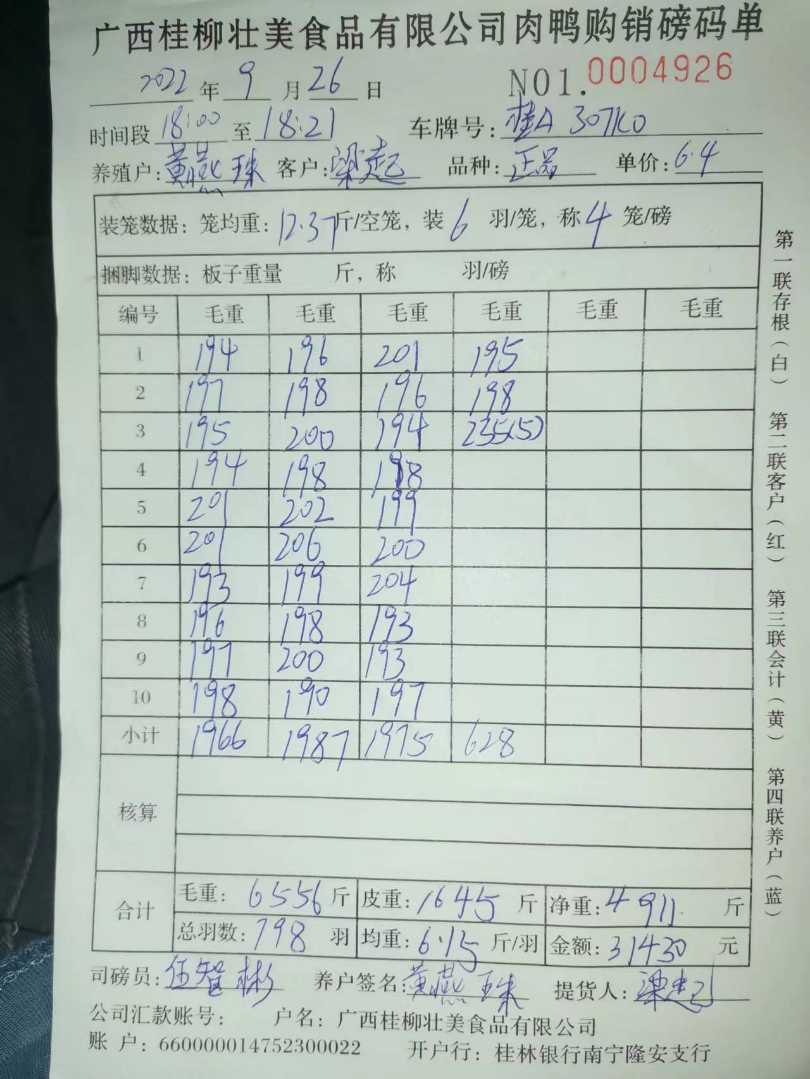 广西桂柳壮美食品有限公司肉鸭购销磅码单
2022 年 9 月 26 日 NO1.0004926
时间段 18:00 至 18:21 车牌号: 桂A 307K0
养殖户: 黄燕珠 客户: 梁起 品种: 正品 单价: 6.4
装笼数据: 笼均重: 12.37 斤/空笼, 装 6 羽/笼, 称 4 笼/磅
捆脚数据: 板子重量 斤, 称 羽/磅
编号 毛重 毛重 毛重 毛重 毛重 毛重
1 194 196 201 195
2 197 198 196 198
3 195 200 194 235(5)
4 194 198 198
5 201 202 199
6 201 206 200
7 193 199 204
8 196 198 193
9 197 200 193
10 198 190 197
小计 1966 1987 1975 628
核算
合计 毛重: 6556 斤 皮重: 1645 斤 净重: 4911 斤
总羽数: 798 羽 均重: 6.15 斤/羽 金额: 31430 元
司磅员: 伍智彬 养户签名: 黄燕珠 提货人: 梁起
公司汇款账号: 户名: 广西桂柳壮美食品有限公司
账 户: 660000014752300022 开户行: 桂林银行南宁隆安支行
第一联存根(白) 第二联客户(红) 第三联会计(黄) 第四联养户(蓝)